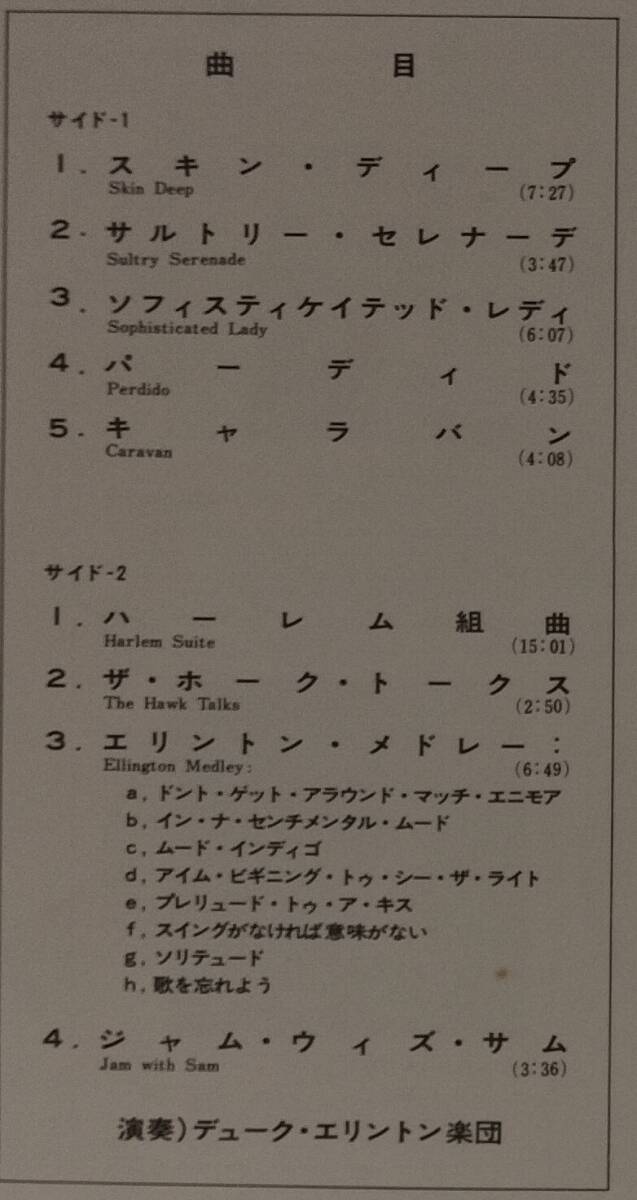 曲目
サイド-1
1. スキン・ディープ
Skin Deep (7:27)
2. サルトリー・セレナーデ
Sultry Serenade (3:47)
3. ソフィスティケイテッド・レディ
Sophisticated Lady (6:07)
4. パーディド
Perdido (4:35)
5. キャラバン
Caravan (4:08)
サイド-2
1. ハーレム組曲
Harlem Suite (15:01)
2. ザ・ホーク・トークス
The Hawk Talks (2:50)
3. エリントン・メドレー:
Ellington Medley: (6:49)
a, ドント・ゲット・アラウンド・マッチ・エニモア
b, イン・ナ・センチメンタル・ムード
c, ムード・インディゴ
d, アイム・ビギニング・トゥ・シー・ザ・ライト
e, プレリュード・トゥ・ア・キス
f, スイングがなければ意味がない
g, ソリテュード
h, 歌を忘れよう
4. ジャム・ウィズ・サム
Jam with Sam (3:36)
演奏)デューク・エリントン楽団